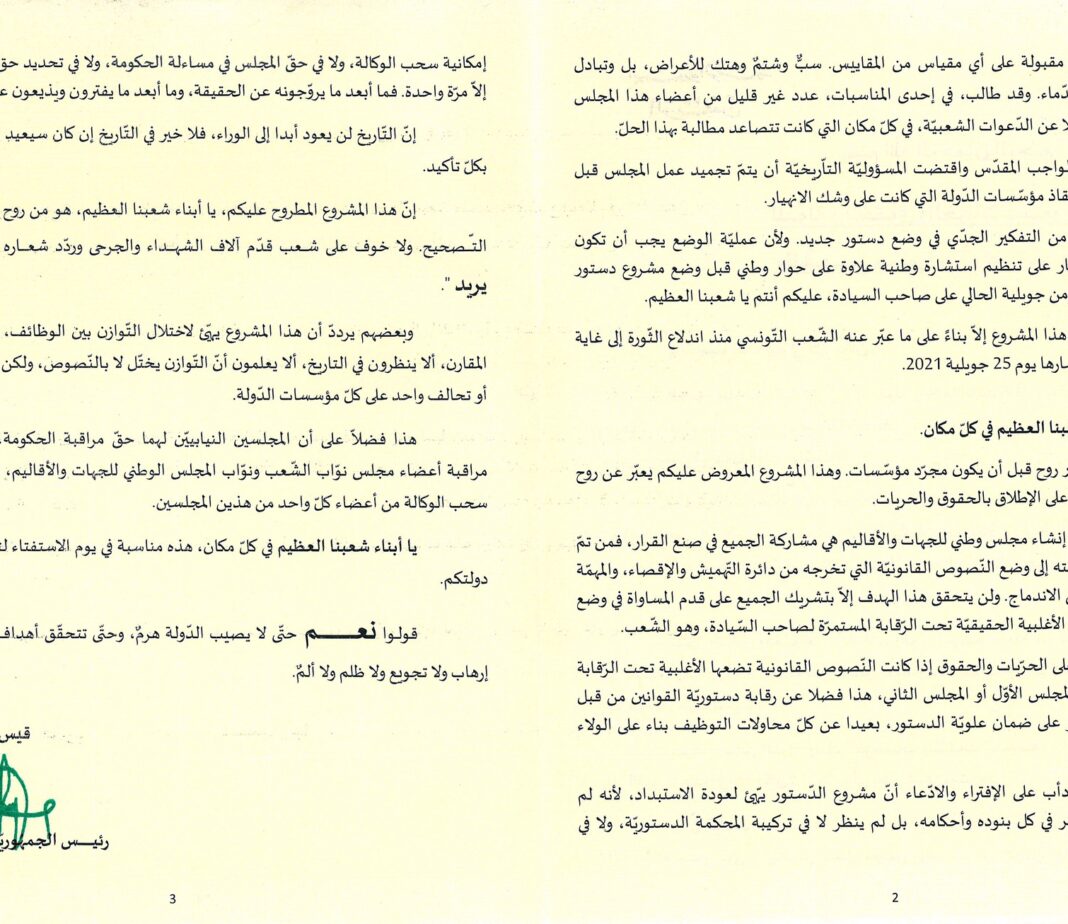 مقبولة على أي مقياس من المقاييس. سبٌّ وشتمٌ وهتك للأعراض، بل وتبادل
دّماء. وقد طالب، في إحدى المناسبات، عدد غير قليل من أعضاء هذا المجلس
لا عن الدّعوات الشعبيّة، في كلّ مكان التي كانت تتصاعد مطالبة بهذا الحلّ.
لواجب المقدّس واقتضت المسؤوليّة التاّريخيّة أن يتمّ تجميد عمل المجلس قبل
قاذ مؤسّسات الدّولة التي كانت على وشك الانهيار.
من التفكير الجدّي في وضع دستور جديد. ولأن عمليّة الوضع يجب أن تكون
ار على تنظيم استشارة وطنية علاوة على حوار وطني قبل وضع مشروع دستور
من جويلية الحالي على صاحب السيادة، عليكم أنتم يا شعبنا العظيم.
هذا المشروع إلاّ بناءً على ما عبّر عنه الشّعب التّونسي منذ اندلاع الثّورة إلى غاية
سارها يوم 25 جويلية 2021.
عبنا العظيم في كلّ مكان.
ر روح قبل أن يكون مجرّد مؤسّسات. وهذا المشروع المعروض عليكم يعبّر عن روح
على الإطلاق بالحقوق والحريات.
إنشاء مجلس وطني للجهات والأقاليم هي مشاركة الجميع في صنع القرار، فمن تمّ
ته إلى وضع النّصوص القانونيّة التي تخرجه من دائرة التّهميش والإقصاء، والمهمّة
الاندماج. ولن يتحقق هذا الهدف إلاّ بتشريك الجميع على قدم المساواة في وضع
الأغلبية الحقيقيّة تحت الرّقابة المستمرّة لصاحب السّيادة، وهو الشّعب.
لى الحرّيات والحقوق إذا كانت النّصوص القانونية تضعها الأغلبية تحت الرّقابة
لمجلس الأوّل أو المجلس الثاني، هذا فضلا عن رقابة دستوريّة القوانين من قبل
ر على ضمان علويّة الدستور، بعيدا عن كلّ محاولات التوظيف بناء على الولاء
دأب على الإفتراء والادّعاء أنّ مشروع الدّستور يهيّئ لعودة الاستبداد، لأنه لم
ر في كل بنوده وأحكامه، بل لم ينظر لا في تركيبة المحكمة الدستوريّة، ولا في
2
إمكانية سحب الوكالة، ولا في حقّ المجلس في مساءلة الحكومة، ولا في تحديد حق
إلاّ مرّة واحدة. فما أبعد ما يروّجونه عن الحقيقة، وما أبعد ما يفترون ويذيعون ع
إنّ التّاريخ لن يعود أبدا إلى الوراء، فلا خير في التّاريخ إن كان سيعيد
بكلّ تأكيد.
إنّ هذا المشروع المطروح عليكم، يا أبناء شعبنا العظيم، هو من روح
التّصحيح. ولا خوف على شعب قدّم آلاف الشهداء والجرحى وردّد شعاره
يريد ".
وبعضهم يرددّ أن هذا المشروع يهيّئ لاختلال التّوازن بين الوظائف،
المقارن، ألا ينظرون في التاريخ، ألا يعلمون أنّ التّوازن يختلّ لا بالنّصوص، ولكن
أو تحالف واحد على كلّ مؤسسات الدّولة.
هذا فضلاً على أن المجلسين النيابييّن لهما حقّ مراقبة الحكومة،
مراقبة أعضاء مجلس نوّاب الشّعب ونوّاب المجلس الوطني للجهات والأقاليم،
سحب الوكالة من أعضاء كلّ واحد من هذين المجلسين.
يا أبناء شعبنا العظيم في كلّ مكان، هذه مناسبة في يوم الاستفتاء لت
دولتكم.
قولوا نعــــم حتّى لا يصيب الدّولة هرمٌ، وحتّى تتحقّق أهداف
إرهاب ولا تجويع ولا ظلم ولا ألمٌ.
قيس
رئيــس الجمهوريّ
3